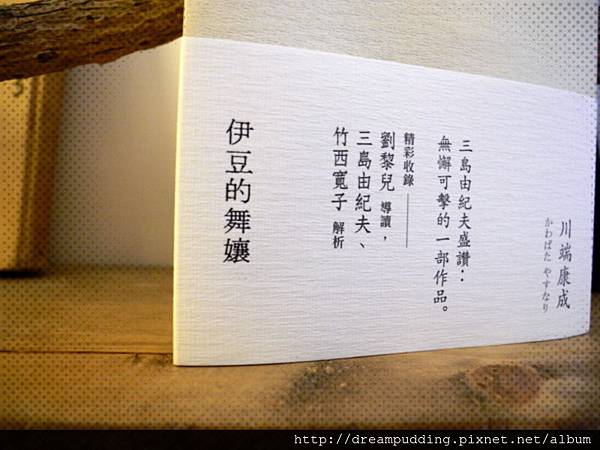 川端康成
かわばた やすなり
三島由紀夫盛讚：
無懈可擊的一部作品。
精彩收錄
劉黎兒 導讀，
三島由紀夫、
竹西寬子 解析
伊豆的舞孃
http://dreampudding.pixnet.net/album